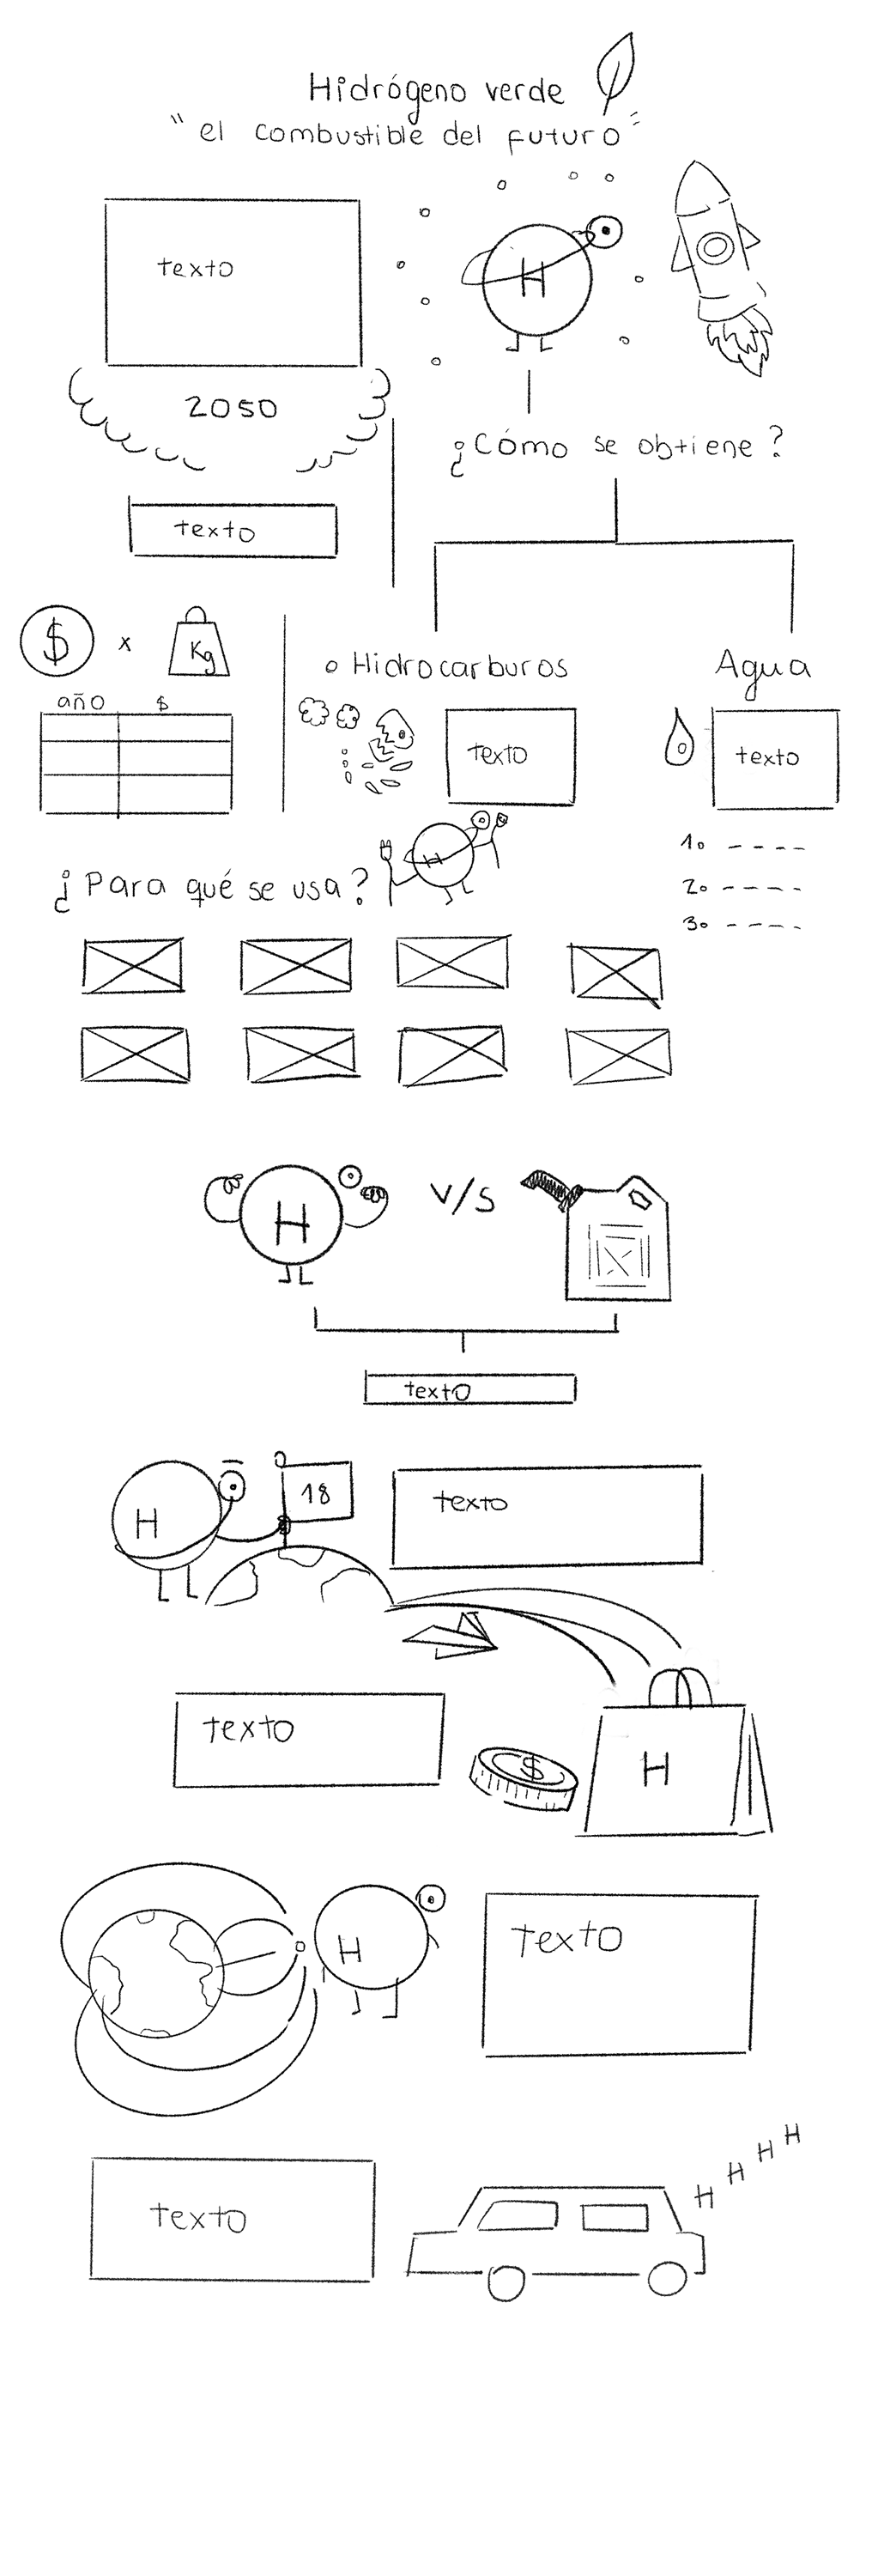 Hidrógeno verde
"el combustible del futuro"
texto
H
2050
¿Cómo se obtiene?
texto
$ x Kg
año $
Hidrocarburos
Agua
texto
texto
1. ----
2. ----
3. ----
¿Para qué se usa?
H
H
V/S
texto
H
18
texto
texto
$
H
H
texto
texto
H H H H